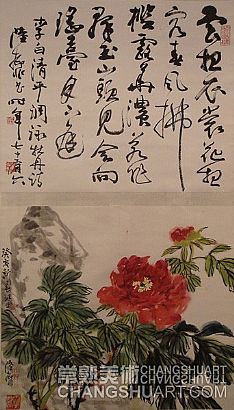 雲想衣裳花想
容春風拂
檻露華濃若非
群玉山頭見會向
瑤臺月下逢
李白清平調詠牡丹詩
陸抑非 時年七十有六
癸亥
常熟美術 CHANGSHUART
CHANGSHUART.COM